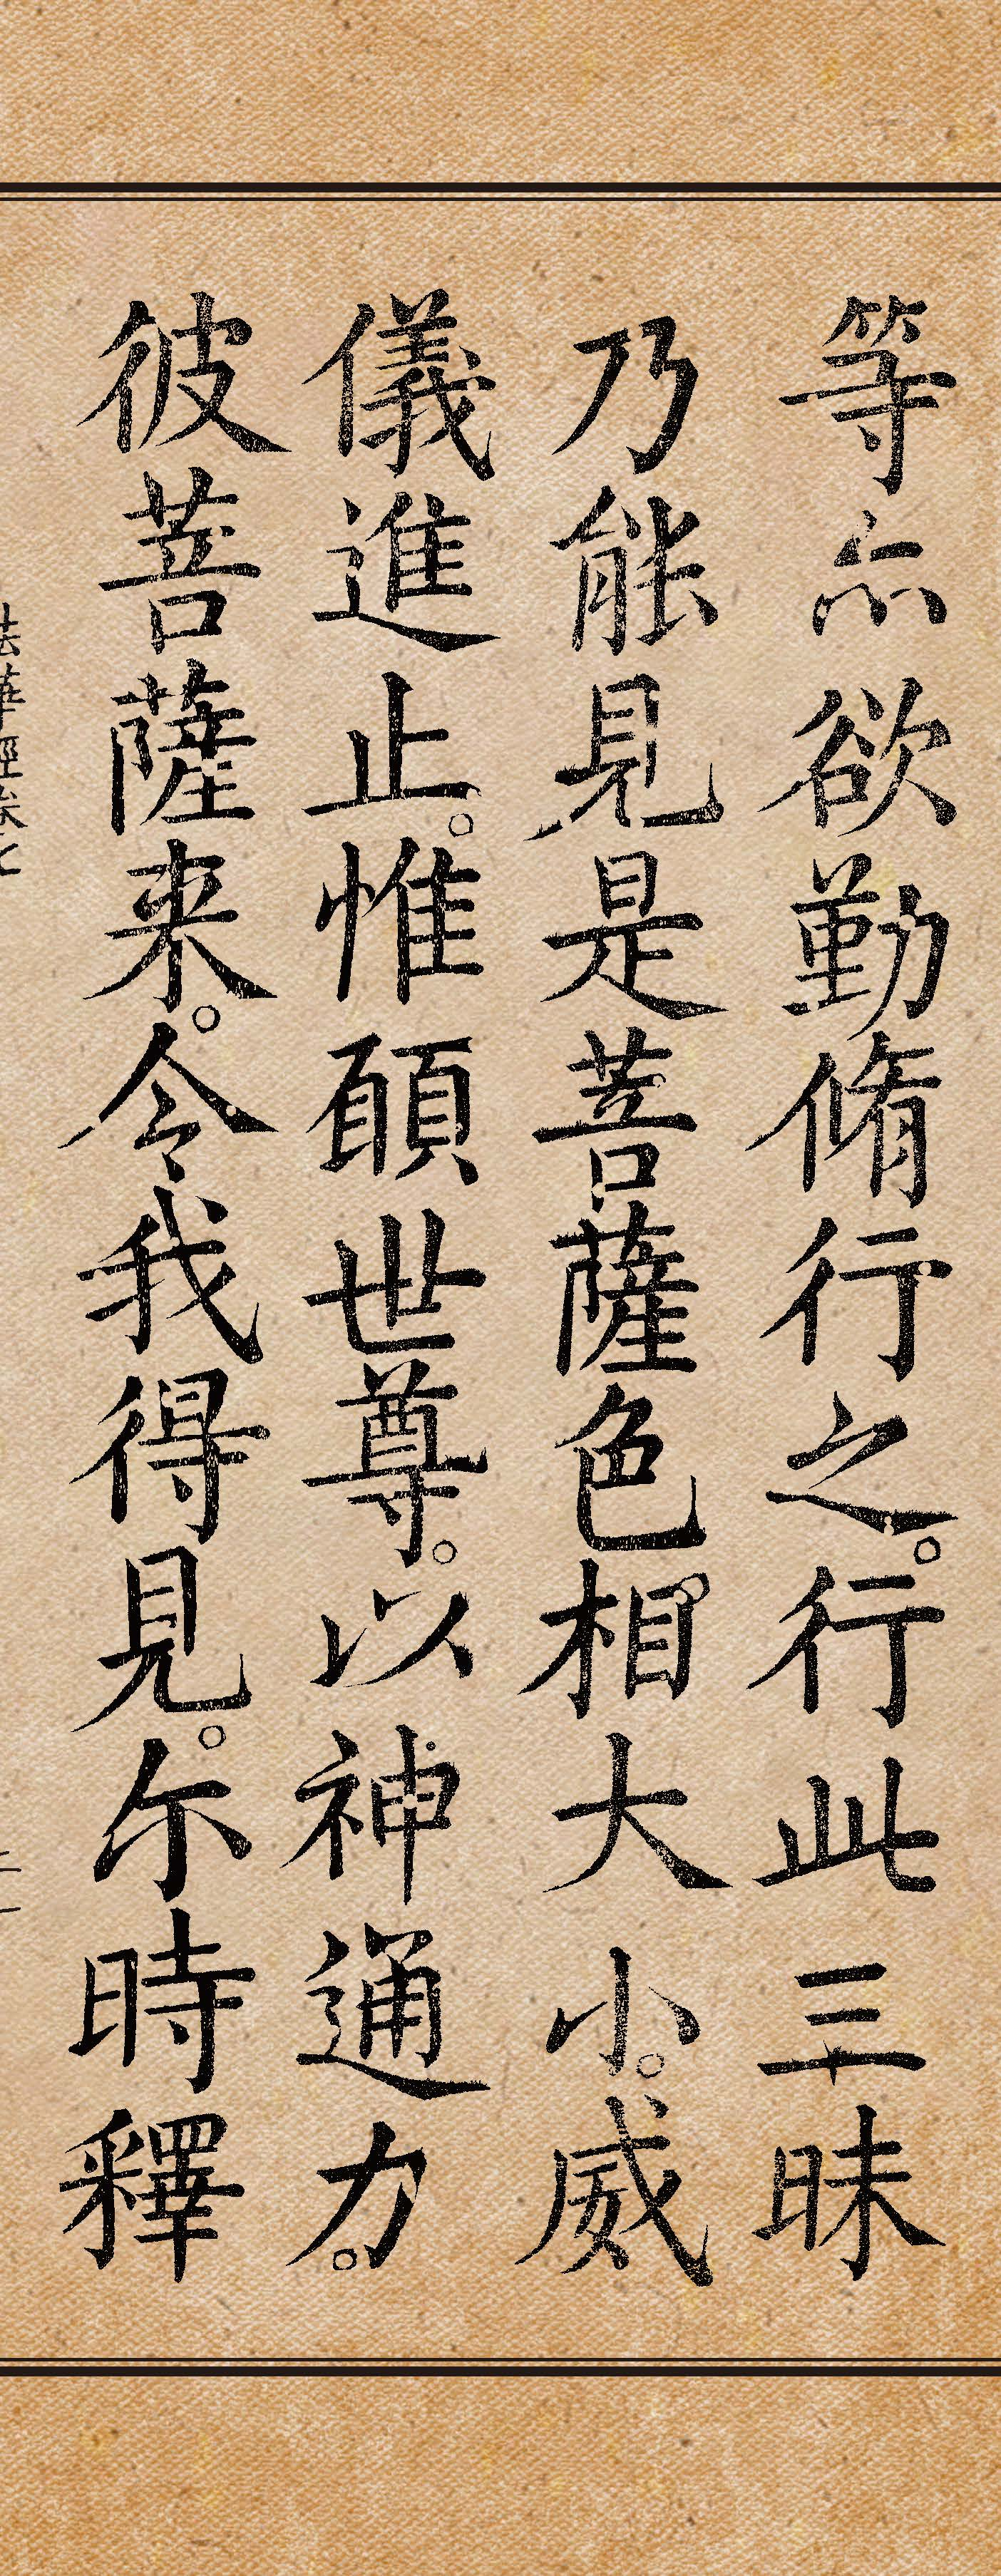 等亦欲勤脩行之。行此三昧
乃能見是菩薩色相大小。威
儀進止。惟願世尊。以神通力。
彼菩薩来。令我得見。尒時釋
法華經卷七